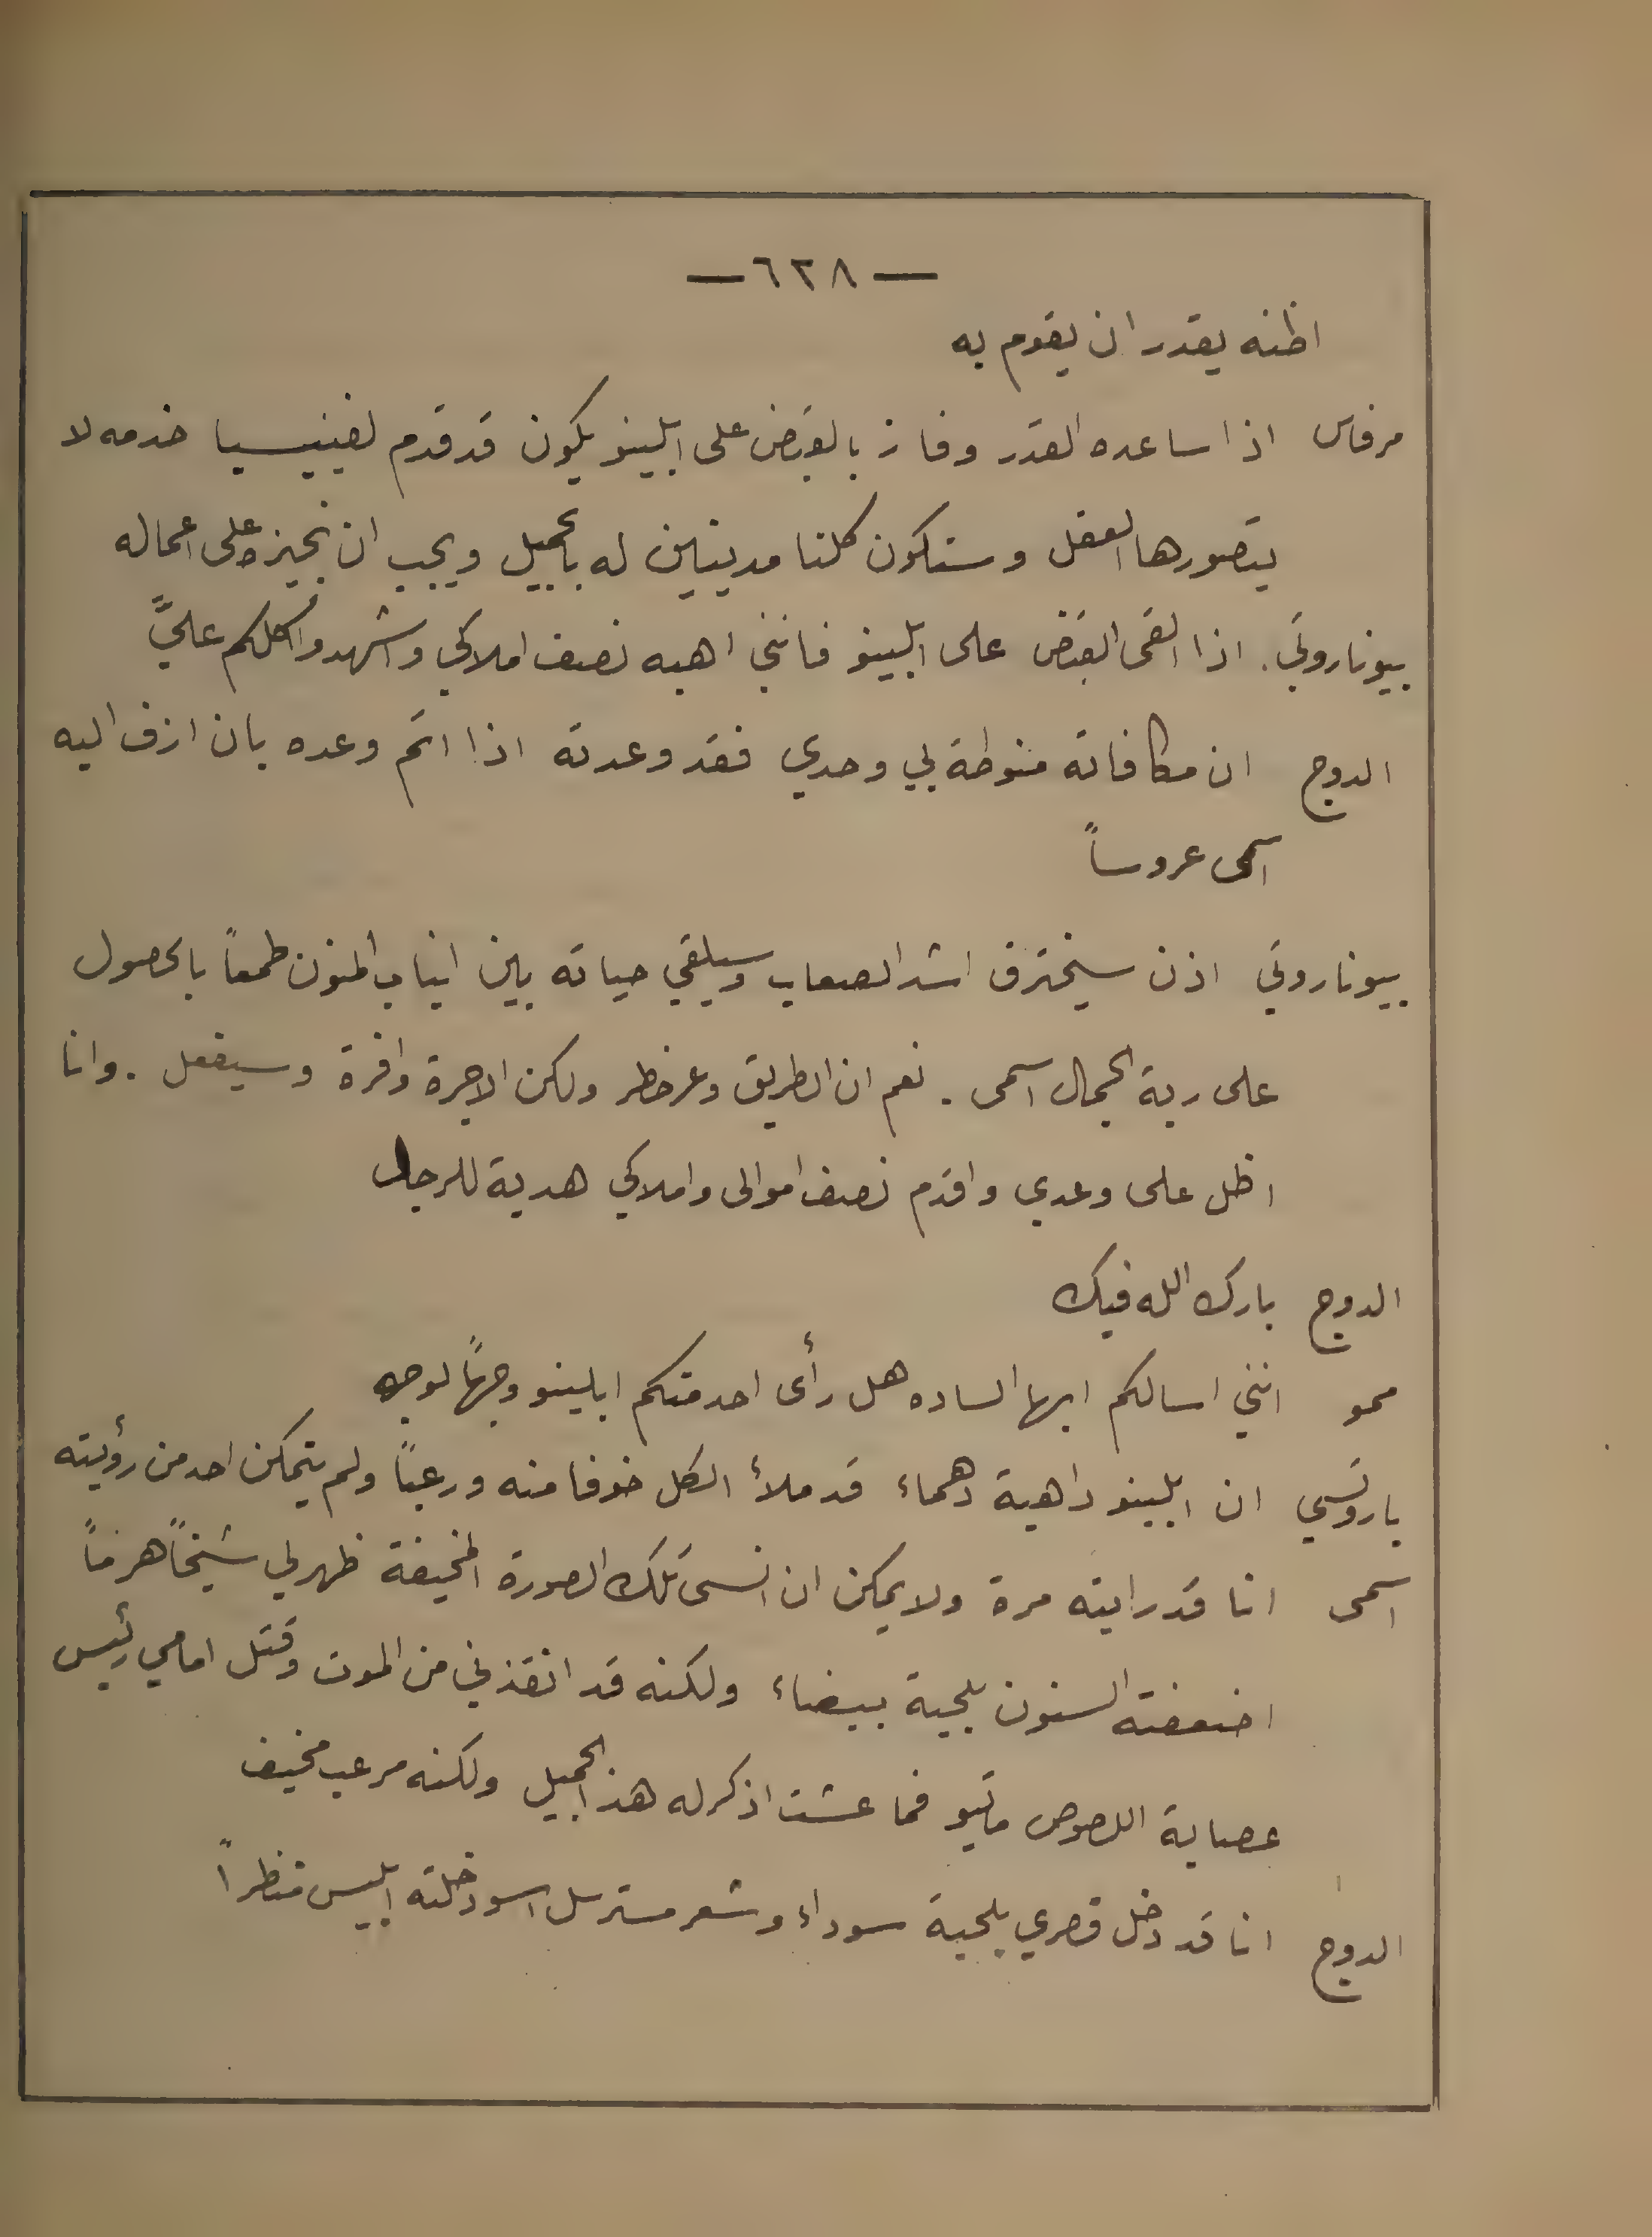 — ٦٢٨ —
اظنه يقدر ان يقوم به
مرفاس اذا ساعده القدر وفاز بالقبض على ابلينو يكون قد قدم لفينيسيا خدمه لا
يتصورها العقل وستكون كلنا مدينين له بالجميل ويجب ان نجيزه على اعماله
بيوناروتي . اذا القى القبض على ابلينو فانني اهبه نصف املاكي واشهدوا كلكم عليَّ
الدوج ان مكافاته منوطة بي وحدي فقد وعدته اذا اتم وعده بان ازف اليه
اسمى عروساً
بيوناروتي اذن سيخترق اشد الصعاب وسيلقي حياته بين انياب المنون طمعاً بالحصول
على ربة الجمال اسمى . نعم ان الطريق وعر خطر ولكن الاجرة وافرة وسيفعل . وانا
اظل على وعدي واقدم نصف اموالى واملاكي هدية للرجل
الدوج بارك الله فيك
ممو انني اسالكم ايها الساده هل رأى احد منكم ابلينو وجهاً لوجه
باروتسي ان ابلينو داهية دهماء قد ملأ الكل خوفا منه ورعباً ولم يتمكن احد من رؤيته
اسمى انا قد رايته مرة ولا يمكن ان انسى تلك الصورة المخيفة ظهر لي شيخاً هرماً
اضعفته السنون بلحية بيضاء ولكنه قد انقذني من الموت وقتل امامي رئيس
عصابة اللصوص ماتيو فما عشت اذكر له هذا الجميل ولكنه مرعب مخيف
الدوج انا قد دخل قصري بلحية سوداء وشعر مسترسل اسود خلته ابليس منظراً